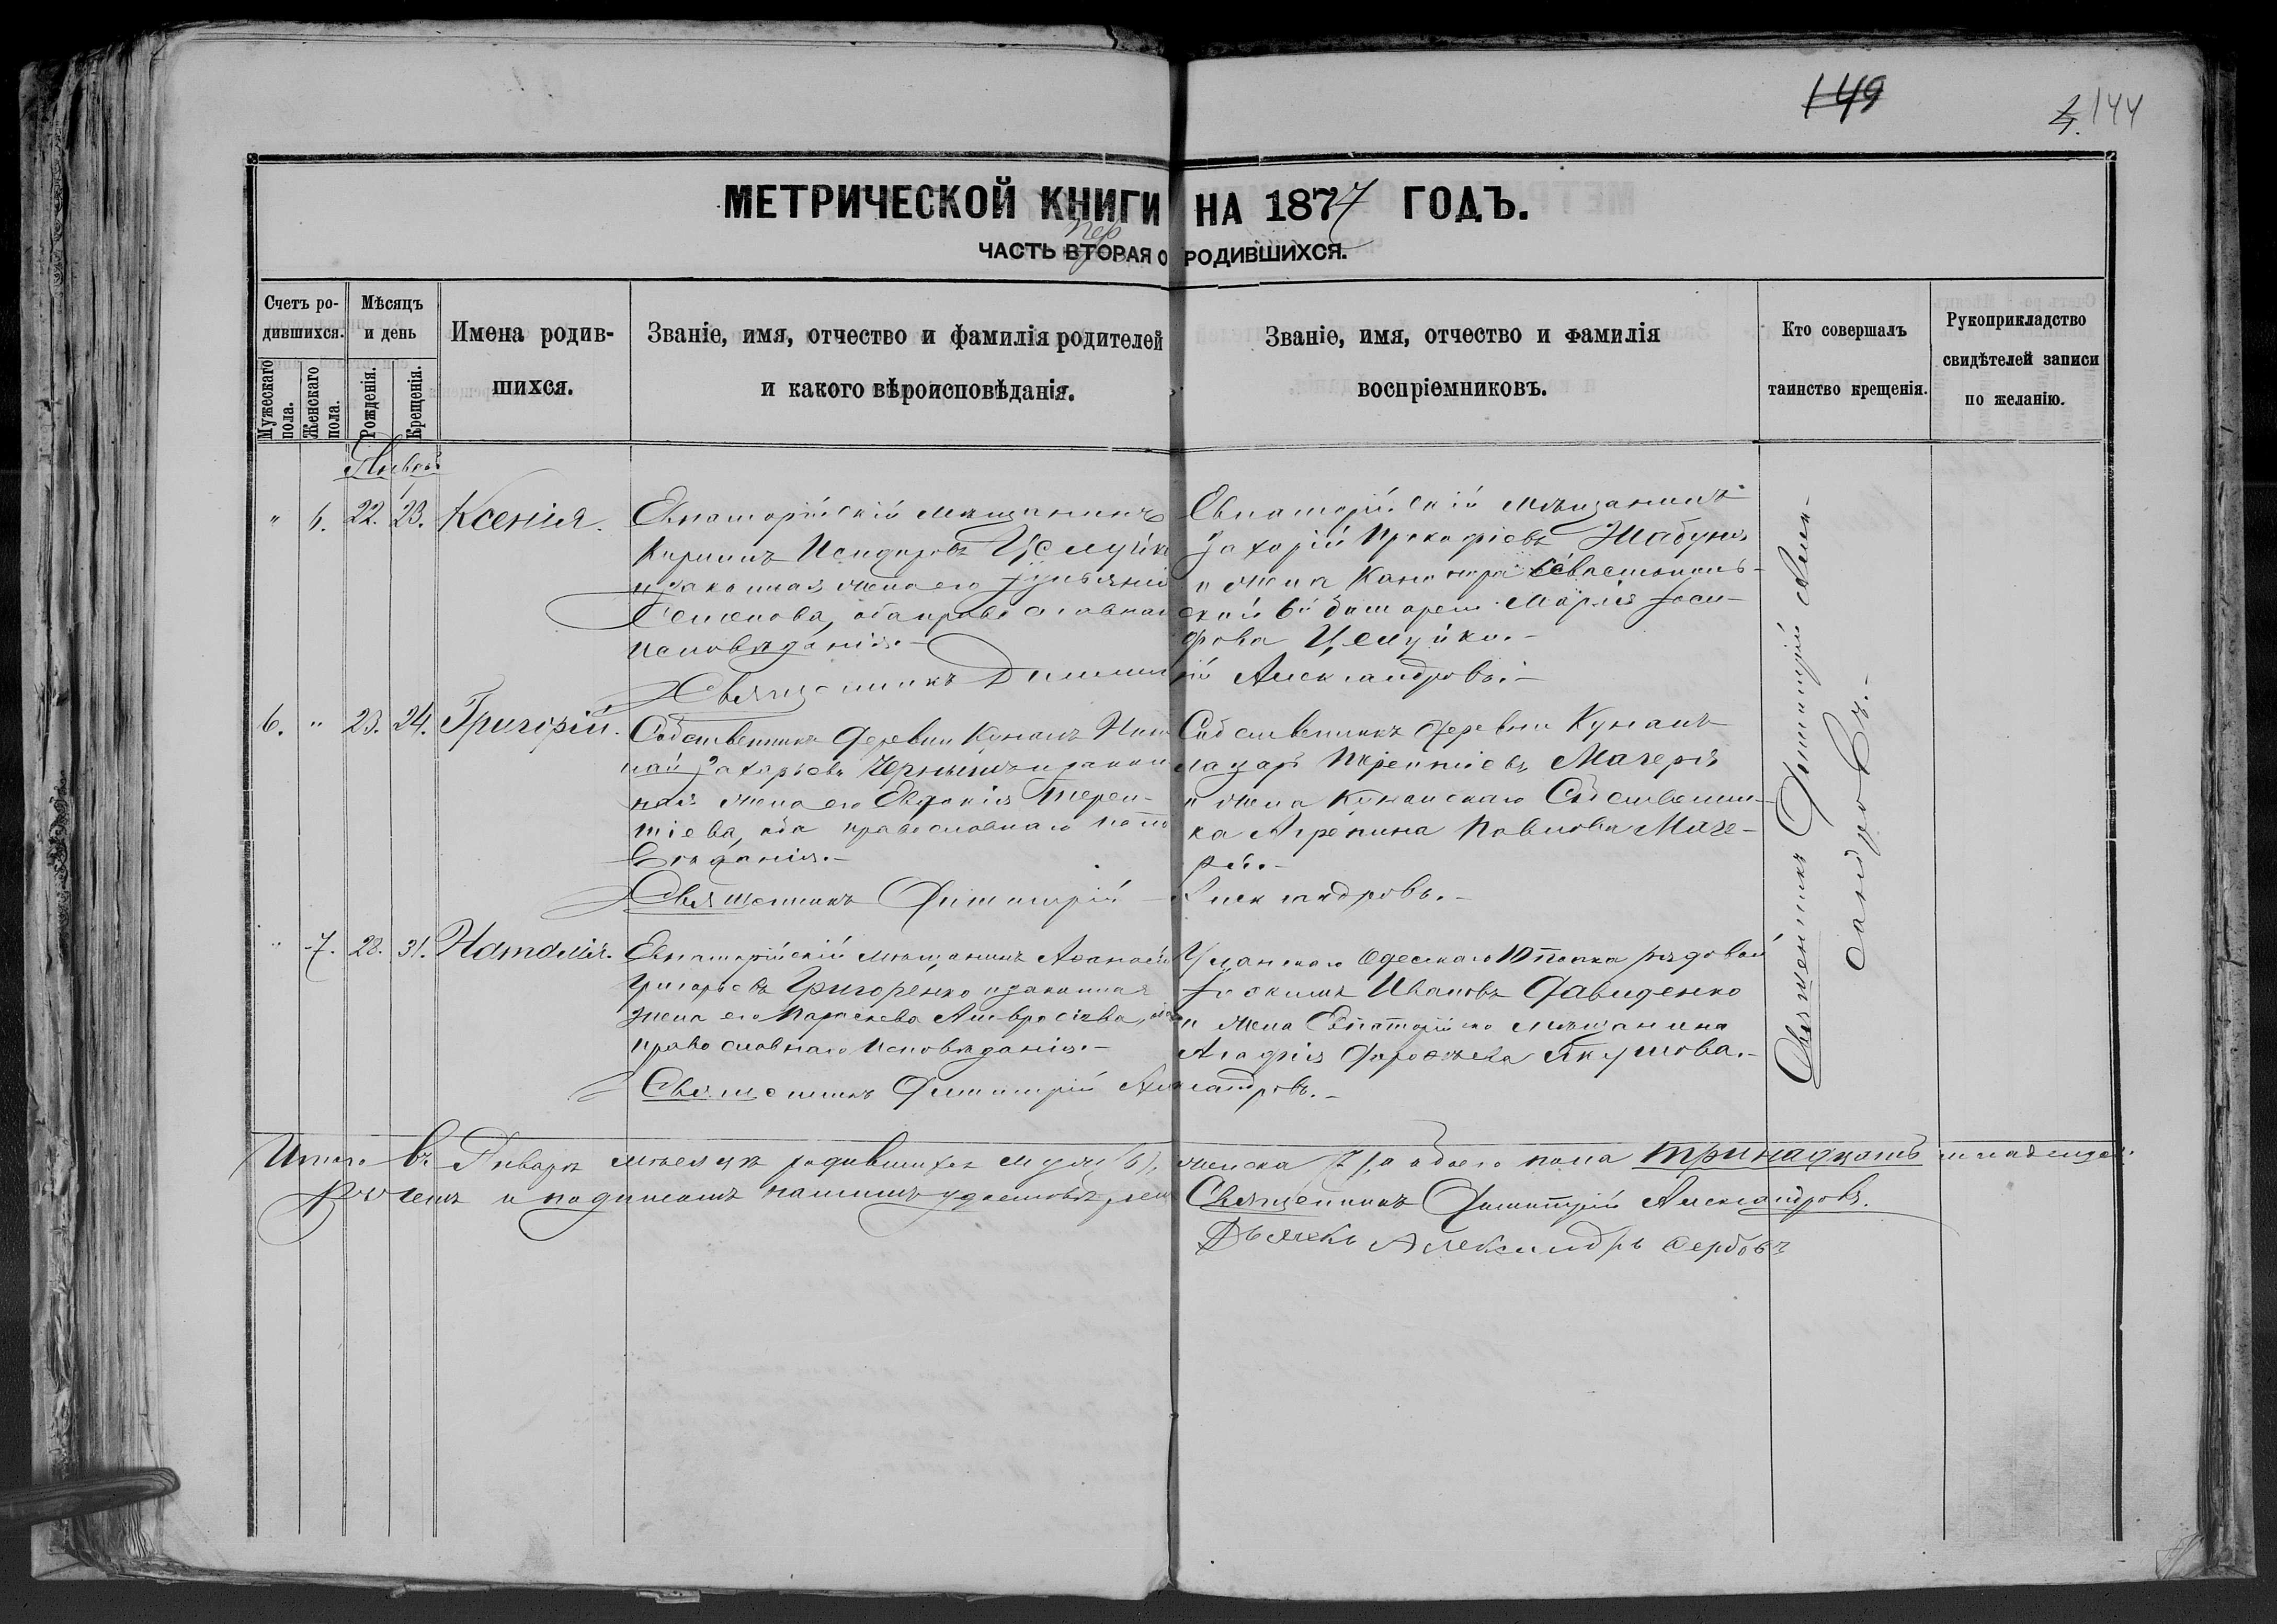 149
4. 144
МЕТРИЧЕСКОЙ КНИГИ НА 1877 ГОДЪ.
пер
ЧАСТЬ ВТОРАЯ О РОДИВШИХСЯ.
Счетъ ро-
дившихся.
Мужескаго пола.
Женскаго пола.
Мѣсяцъ
и день
Рожденія.
Крещенія.
Имена родив-
шихся.
Званіе, имя, отчество и фамилія родителей
и какого вѣроисповѣданія.
Званіе, имя, отчество и фамилія
воспріемниковъ.
Кто совершалъ
таинство крещенія.
Рукоприкладство
свидѣтелей записи
по желанію.
Январь
" 6. 22. 23. Ксенія.
Евпаторійскій мѣщанинъ
Исидоровъ
и законная жена его
Семенова, оба православнаго
исповѣданія.-
Евпаторійскій мѣщанинъ
Захарій Прокофіевъ
и жена Канонера Севастополь-
ской батареи Марія Iоси-
фова
Священникъ Димитрій Александровъ.-
6. " 23. 24. Григорій.
Собственникъ деревни Кунанъ
Захарьевъ и закон
ная жена его Евдокія Терен-
тіева, оба православнаго испо
вѣданія.-
Собственникъ деревни Кунанъ
Лазарь Терентіевъ
и жена Кунанскаго Собственни-
ка Агрепина Павлова
Священникъ Димитрій Александровъ.-
" 7. 28. 31. Наталія.
Евпаторійскій мѣщанинъ Аѳанасій
Григорьевъ Григоренко и законная
жена его Параскева Амвросіева, оба
православнаго исповѣданія.-
Уланскаго Одескаго 10 полка рядовой
Iоакимъ Ивановъ Давиденко
и жена Евпаторійско мѣщанина
Агафія Якушова.-
Священникъ Димитрій Александровъ.-
Священникъ Димитрій Алек-
сандровъ.-
Итого въ Январѣ мѣсяцѣ родившихся муж. (6), женска (7), а обоего пола тринадцать
и подписомъ нашимъ удостовѣряемъ Священникъ Димитрій Александровъ.
Дьячекъ Александръ Сербовъ